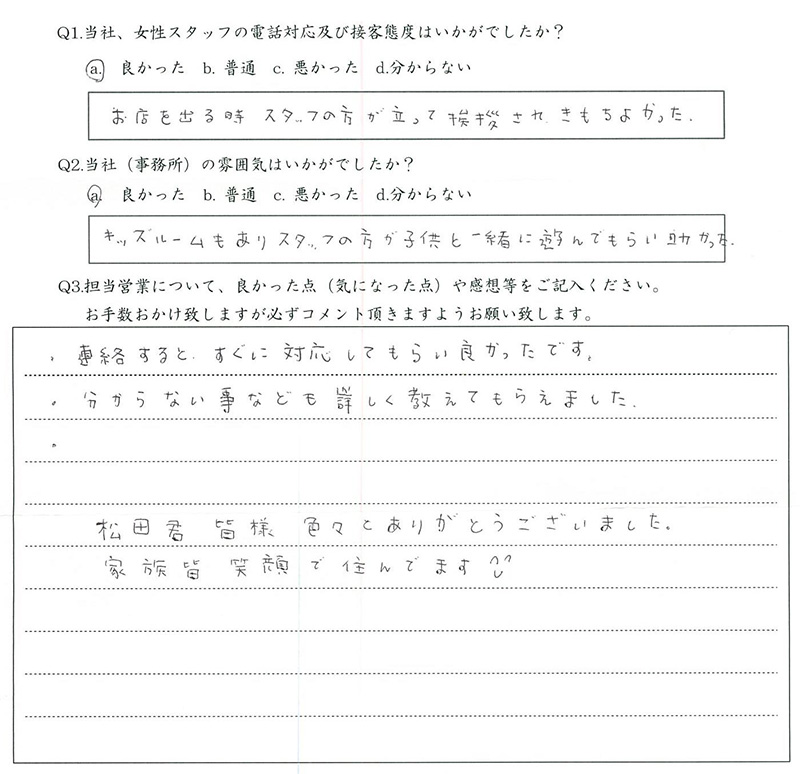 Q1.当社、女性スタッフの電話対応及び接客態度はいかがでしたか？
a. 良かった b. 普通 c. 悪かった d.分からない
お店を出る時 スタッフの方が立って挨拶され、きもちよかった.
Q2.当社（事務所）の雰囲気はいかがでしたか？
a. 良かった b. 普通 c. 悪かった d.分からない
キッズルームもありスタッフの方が子供と一緒に遊んでもらい助かった.
Q3.担当営業について、良かった点（気になった点）や感想等をご記入ください。
お手数おかけ致しますが必ずコメント頂きますようお願い致します。
・連絡すると、すぐに対応してもらい良かったです。
・分からない事なども詳しく教えてもらえました.
・
松田君 皆様 色々とありがとうございました。
家族皆 笑顔で住んでます